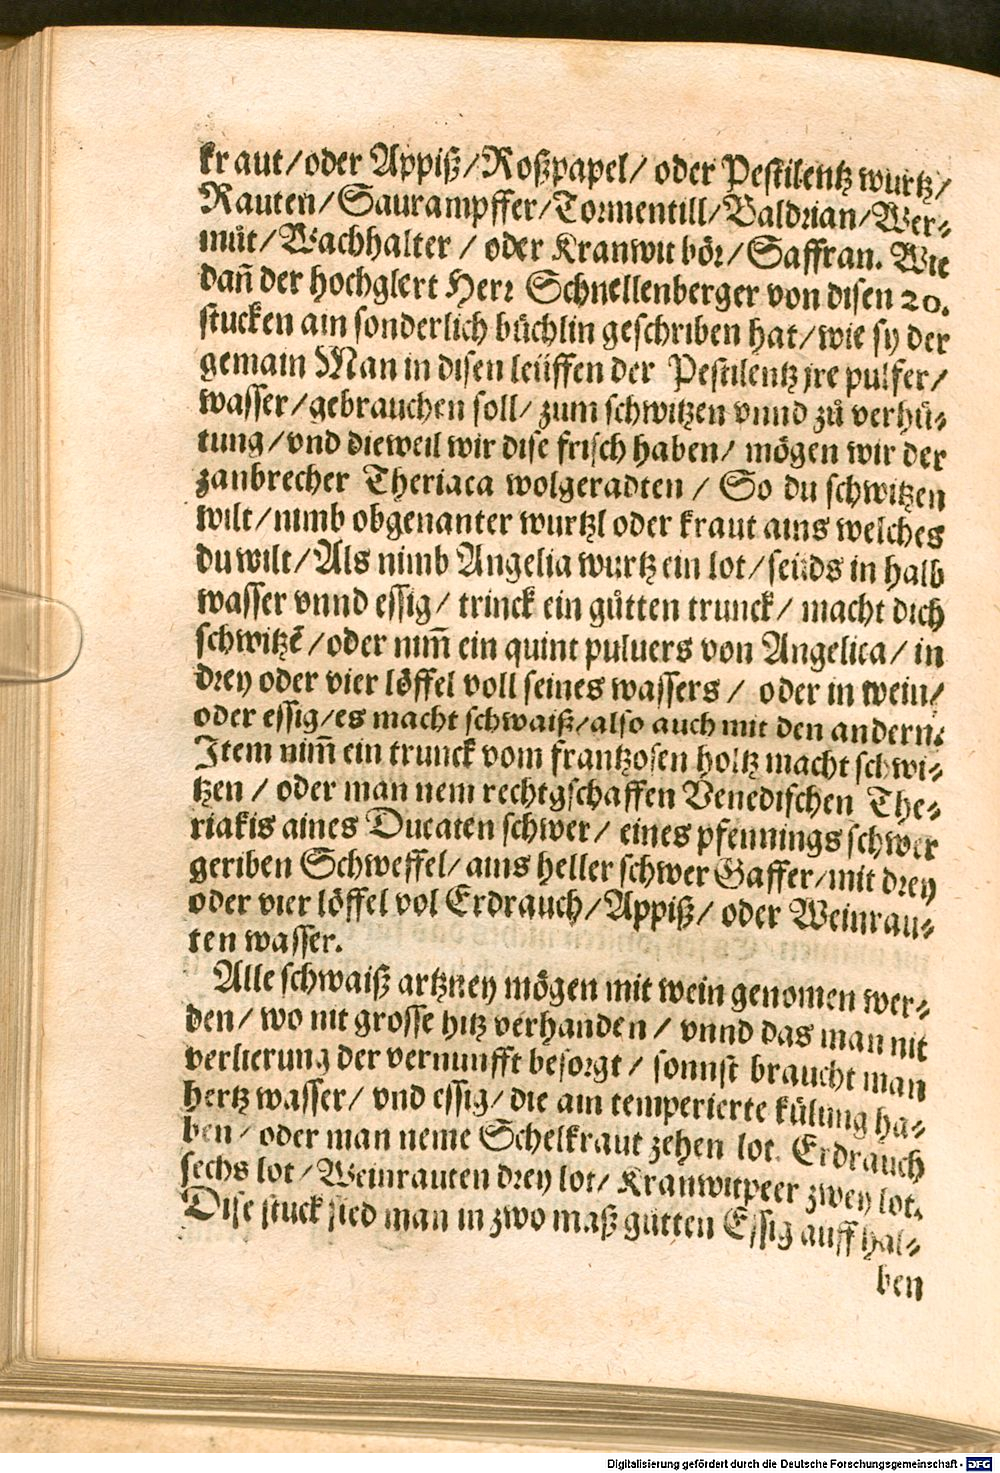 kraut/oder Appiß/Roßpapel/ oder Pestilentz wurtz/
Rauten/Saurampffer/Tormentill/Baldrian/Wer-
můt/Wachhalter / oder Kranwit bör/Saffran. Wie
dañ der hochglert Herr Schnellenberger von disen 20.
stucken ain sonderlich büchlin geschriben hat/wie sy der
gemain Man in disen leüffen der Pestilentz jre pulfer/
wasser/gebrauchen soll/ zum schwitzen vnnd zů verhü-
tung/vnd dieweil wir dise frisch haben/ mögen wir der
zanbrecher Theriaca wolgeradten / So du schwitzen
wilt/nimb obgenanter wurtzl oder kraut ains welches
du wilt/Als nimb Angelia wurtz ein lot/seüds in halb
wasser vnnd essig/ trinck ein gůtten trunck/ macht dich
schwitzē/oder nim̃ ein quint puluers von Angelica/ in
drey oder vier löffel voll seines wassers / oder in wein/
oder essig/es macht schwaiß/also auch mit den andern.
Item nim̃ ein trunck vom frantzosen holtz macht schwi-
tzen / oder man nem rechtgschaffen Venedischen The-
riakis aines Ducaten schwer/ eines pfennings schwer
geriben Schweffel/ains heller schwer Gaffer/mit drey
oder vier löffel vol Erdrauch/Appiß/ oder Weinrau-
ten wasser.
Alle schwaiß artzney mögen mit wein genomen wer-
den/ wo nit grosse hitz verhanden / vnnd das man nit
verlierung der vernunfft besorgt / sonnst braucht man
hertz wasser/ vnd essig/ die ain temperierte külung ha-
ben/ oder man neme Schelkraut zehen lot. Erdrauch
sechs lot/Weinrauten drey lot/ Kranwitpeer zwey lot.
Dise stuck sied man in zwo maß gůtten Essig auff hal-
ben
Digitalisierung gefördert durch die Deutsche Forschungsgemeinschaft - DFG